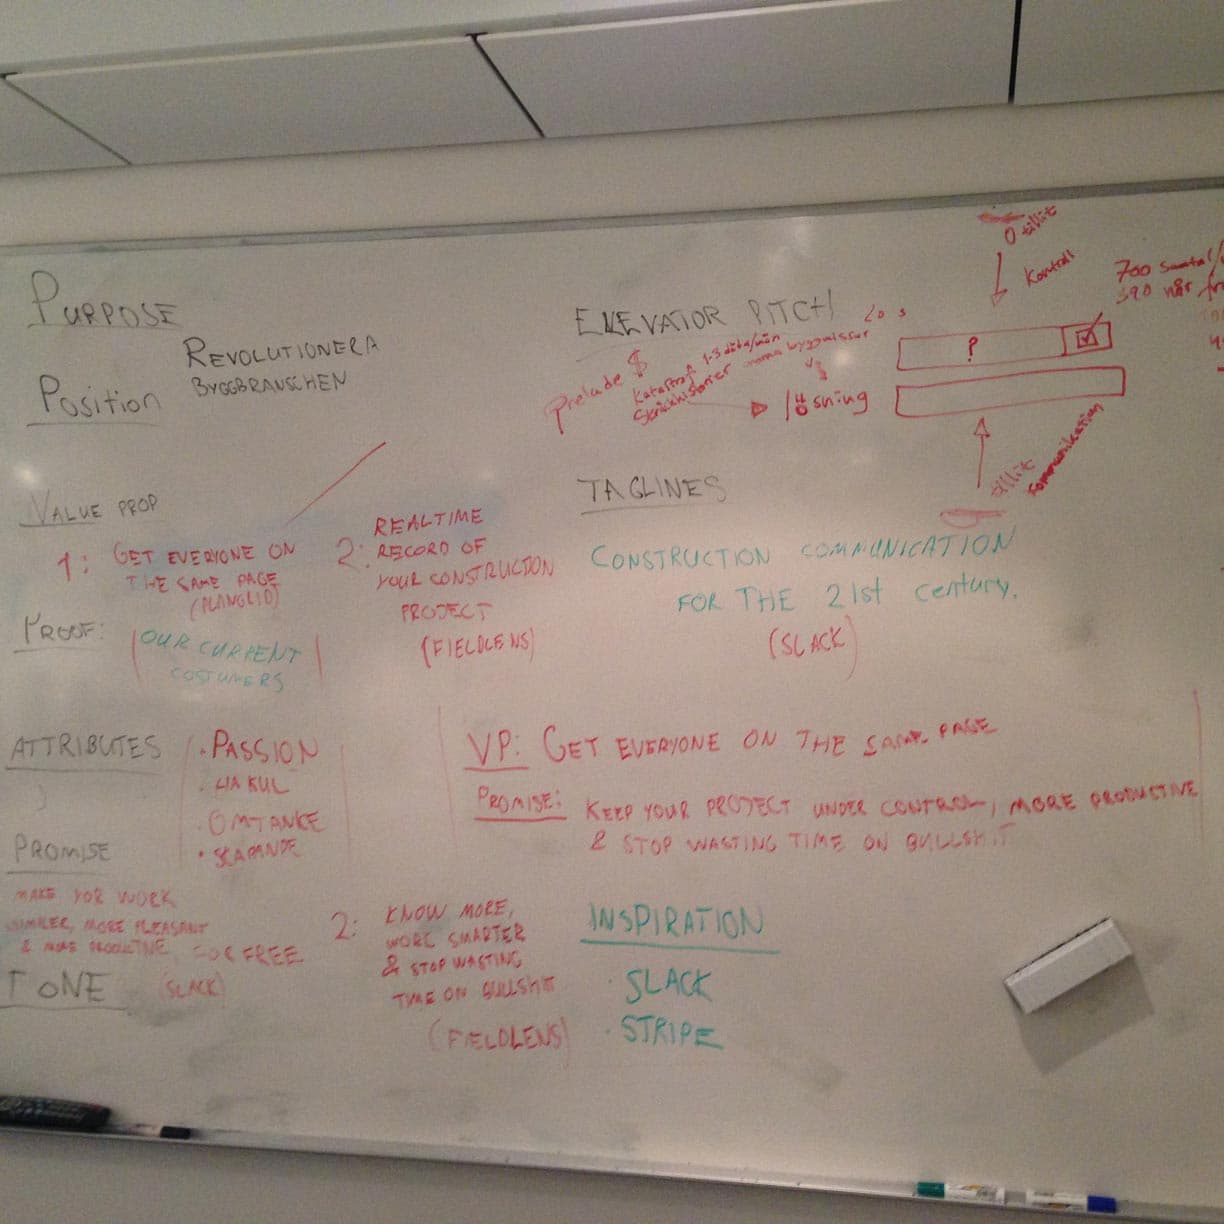 PURPOSE
REVOLUTIONERA
BYGGBRANSCHEN
POSITION
VALUE PROP
1: GET EVERYONE ON
THE SAME PAGE
(PLANGRID)
2: REALTIME
RECORD OF
YOUR CONSTRUCTION
PROJECT
(FIELDLENS)
PROOF:
OUR CURRENT
COSTUMERS
ATTRIBUTES
• PASSION
• OMTANKE
• SKAPANDE
PROMISE
MAKE YOR WORK
SIMPLER, MORE PLEASANT
& MORE PRODUCTIVE, FOR FREE
(SLACK)
2: KNOW MORE,
WORK SMARTER
& STOP WASTING
TIME ON BULLSHIT
(FIELDLENS)
TONE
ELEVATOR PITCH
prelude $
Katastrof 1-3
Skräckhistorier
lösning
?
0 tillit
Kontroll
700 samtal/
390 när
tillit
kommunikation
TAGLINES
CONSTRUCTION COMMUNICATION
FOR THE 21st century.
(SLACK)
VP: GET EVERYONE ON THE SAME PAGE
PROMISE: KEEP YOUR PROJECT UNDER CONTROL, MORE PRODUCTIVE
& STOP WASTING TIME ON BULLSHIT
INSPIRATION
• SLACK
• STRIPE